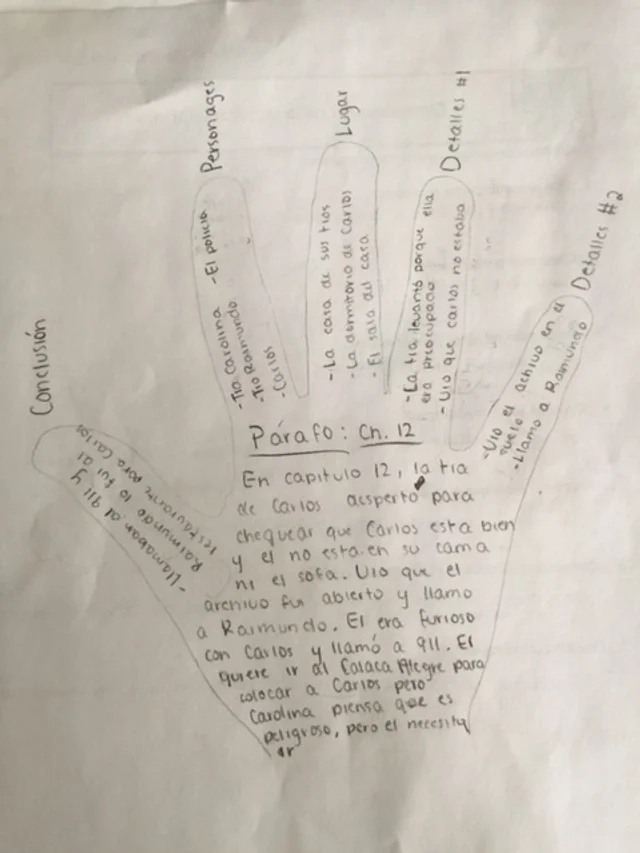 Conclusión
- Llamaban al 911 y
Raimundo lo fui al
restaurante para Carlos
Personages
- Tia Carolina
- Tio Raimundo
- Carlos
- El policia
Lugar
- La casa de sus tios
- La dormitorio de Carlos
- El sala del casa
Detalles #1
- La tia levantó porque ella
era preocupado
- Vio que carlos no estaba
Detalles #2
- Vio el achivo en el
suelo
- Llamo a Raimundo
Párafo: Ch. 12
En capitulo 12, la tia
de Carlos desperto para
chequear que Carlos esta bien
y el no esta en su cama
ni el sofa. Vio que el
archivo fui abierto y llamo
a Raimundo. El era furioso
con Carlos y llamó a 911. El
quiere ir al Calaca Alegre para
colocar a Carlos pero
Carolina piensa que es
peligroso, pero el necesita
ir